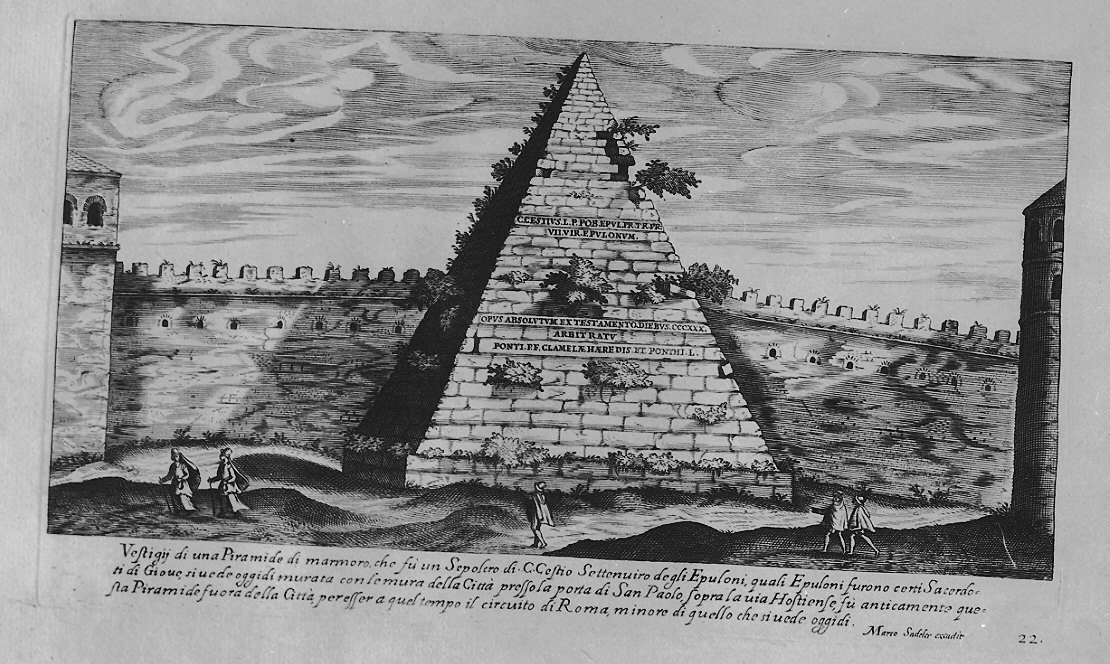 C.CESTIVS.L.F.POB.EPVL.PR.TR.PL
VII.VIR.EPVLONVM.
OPVS ABSOLVTVM EX TESTAMENTO.DIEBVS.CCCXXX.
ARBITRATV
PONTI.P.F. CLAMELÆ HÆREDIS. ET. PONTHI.L.
Vestigij di una Piramide di marmoro, che fù un Sepolcro di C. Cestio Settenuiro degli Epuloni, quali Epuloni furono certi Sacerdo=
ti di Gioue, si uede oggidi murata con le mura della Città presso la porta di San Paolo, sopra la uia Hostiense, fù anticamente que=
sta Piramide fuora della Città, per esser a quel tempo il circuito di Roma, minore di quello che si uede oggidi.
Marco Sadeler excudit
22.